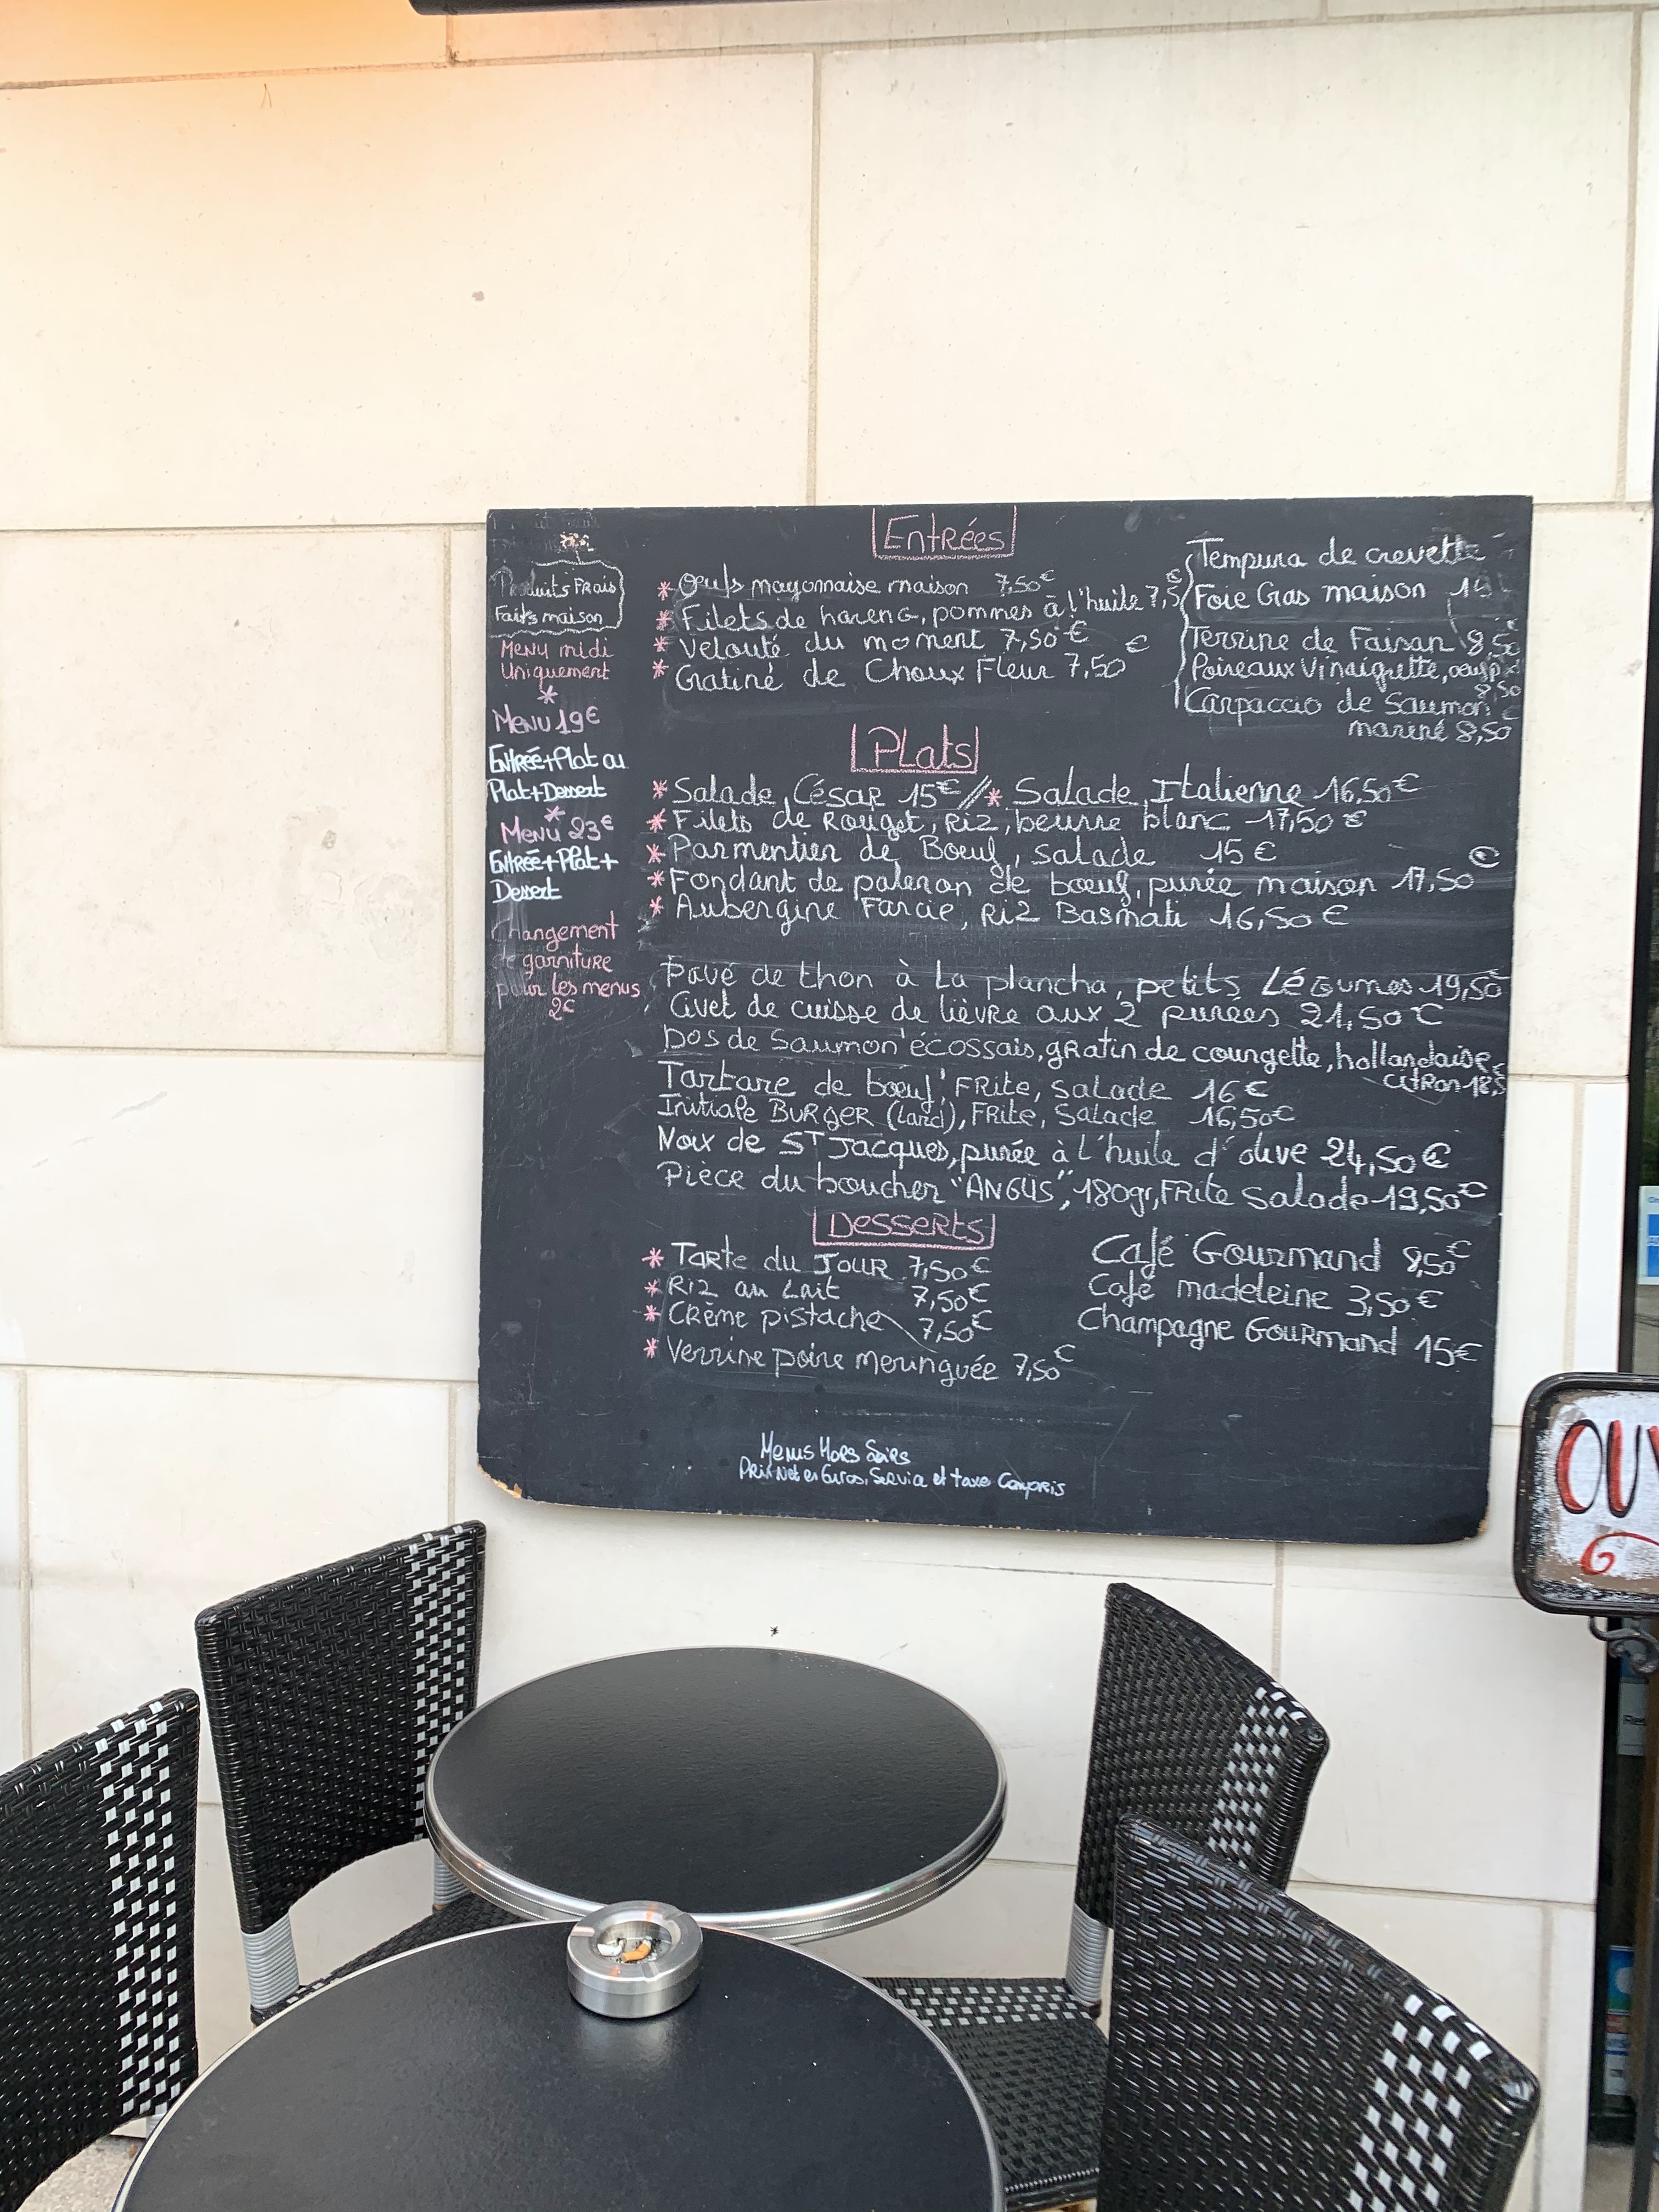 Produits Frais
Faits maison
Menu midi
Uniquement
*
Menu 19€
Entrée+Plat ou
Plat+Dessert
*
Menu 23€
Entrée+Plat+
Dessert
Changement
de garniture
pour les menus
2€
Entrées
* Oeufs mayonnaise maison 7,50€
* Filets de hareng, pommes à l'huile 7,5€
* Velouté du moment 7,50€
* Gratiné de Choux Fleur 7,50€
Tempura de crevette
Foie Gras maison
Terrine de Faisan 8,50€
Poireaux Vinaigrette,
8,50
Carpaccio de Saumon
mariné 8,50€
Plats
* Salade César 15€ // * Salade Italienne 16,50€
* Filets de Rouget, Riz, beurre blanc 17,50€
* Parmentier de Bœuf, salade 15€
* Fondant de paleron de bœuf, purée maison 17,50€
* Aubergine Farcie, Riz Basmati 16,50€
Pavé de thon à La plancha, petits Légumes 19,50
Civet de cuisse de lièvre aux 2 purées 21,50€
Dos de Saumon écossais, gratin de courgette, hollandaise
citron 18,5
Tartare de bœuf, Frite, Salade 16€
Initiale BURGER (Lard), Frite, Salade 16,50€
Noix de ST Jacques, purée à l'huile d'olive 24,50€
Pièce du boucher "ANGUS", 180gr, FRite Salade 19,50€
Desserts
* Tarte du Jour 7,50€
* Riz au Lait 7,50€
* Crème pistache 7,50€
* Verrine poire meringuée 7,50€
Café Gourmand 8,50€
Café madeleine 3,50€
Champagne Gourmand 15€
Menus Hors Soirs
Prix Net en Euros, Service et taxe Compris
OUV